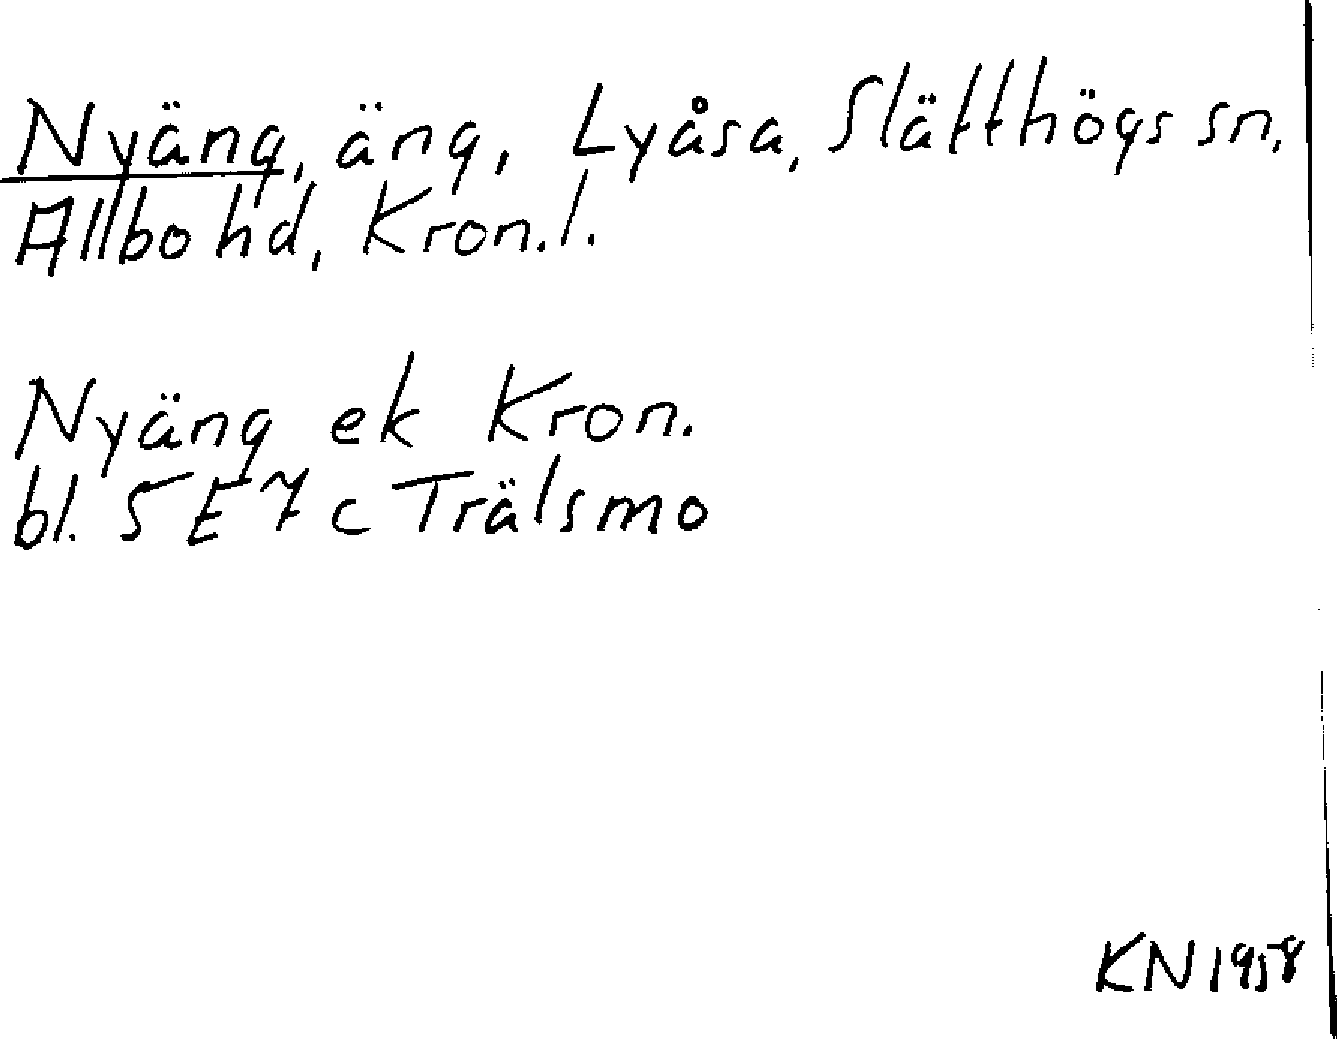 Nyäng, äng, Lyåsa, Slätthögs sn,
Allbo hd, Kron.l.
Nyäng ek Kron.
bl. 5E7c Trälsmo
KN 1958